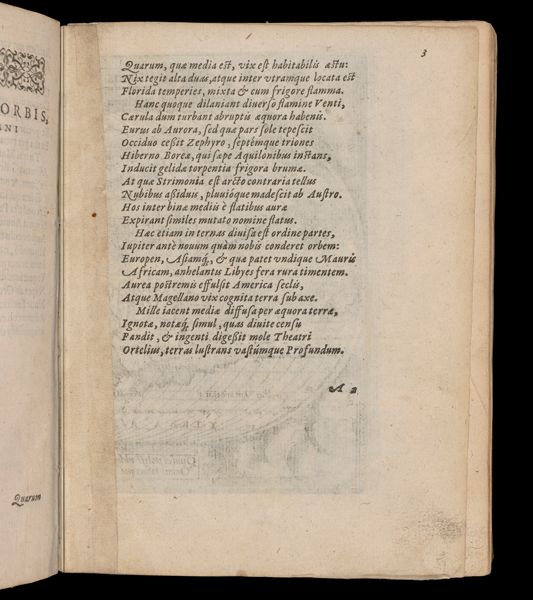 ORBIS,
INI
Quarum
3
Quarum, quæ media est, vix est habitabilis æstu:
Nix tegit alta duas, atque inter vtramque locata est
Florida temperies, mixta & cum frigore flamma.
Hanc quoque dilaniant diuerso flamine Venti,
Cærula dum turbant abruptis æquora habenis.
Eurus ab Aurora, sed quæ pars sole tepescit
Occiduo ceßit Zephyro, septémque triones
Hiberno Boreæ, qui sæpe Aquilonibus instans,
Inducit gelidæ torpentia frigora brumæ.
At quæ Strimonia est arcto contraria tellus
Nubibus aßiduis, pluuióque madescit ab Austro.
Hos inter binæ mediis è flatibus auræ
Expirant similes mutato nomine flatus.
Hæc etiam in ternas diuisa est ordine partes,
Iupiter antè nouum quàm nobis conderet orbem:
Europen, Asiamq́, & quæ patet vndique Mauris
Africam, anhelantis Libyes fera rura timentem.
Aurea postremis effulsit America seclis,
Atque Magellano vix cognita terra sub axe.
Mille iacent mediæ diffusa per æquora terræ,
Ignotæ, notæq́ simul, quas diuite censu
Pandit, & ingenti digeßit mole Theatri
Ortelius, terras lustrans vastúmque Profundum.
A 2